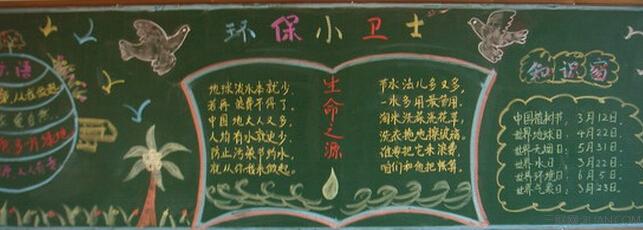 环保小卫士
地球淡水本就少,
若再浪费不得了,
中国地大人又多,
人均有水就更少,
防止污染节约水,
就从你我来做起。
生命之源
节水法儿多又多,
一水多用最管用,
淘水洗菜洗花草,
洗衣拖地擦玻璃。
谁要把它来浪费,
咱们和他把帐算。
知识窗
中国植树节:3月12日
世界地球日:4月22日
世界无烟日:5月31日
世界水日:3月22日
世界环境日:6月5日
世界气象日:3月23日